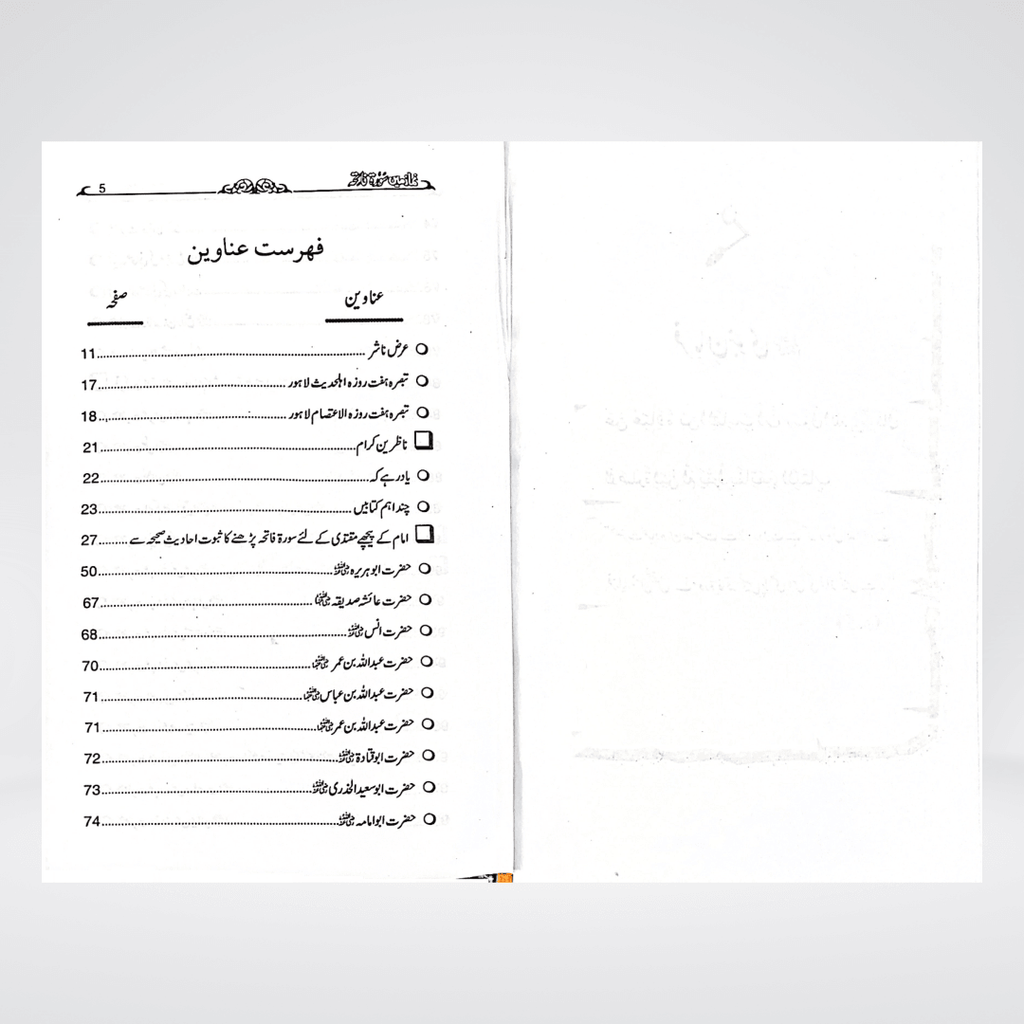 نماز میں سورۃ فاتحہ 5
فہرست عناوین
عناوین صفحہ
عرض ناشر 11
تبصرہ ہفت روزہ اہلحدیث لاہور 17
تبصرہ ہفت روزہ الاعتصام لاہور 18
ناظرین کرام 21
یاد رہے کہ 22
چند اہم کتابیں 23
امام کے پیچھے مقتدی کے لئے سورۃ فاتحہ پڑھنے کا ثبوت احادیث صحیحہ سے 27
حضرت ابو ہریرہ رضی اللہ عنہ 50
حضرت عائشہ صدیقہ رضی اللہ عنہا 67
حضرت انس رضی اللہ عنہ 68
حضرت عبداللہ بن عمر رضی اللہ عنہما 70
حضرت عبداللہ بن عباس رضی اللہ عنہما 71
حضرت عبداللہ بن عمر رضی اللہ عنہما 71
حضرت ابوقتادۃ رضی اللہ عنہ 72
حضرت ابوسعید الخدری رضی اللہ عنہ 73
حضرت ابوامامہ رضی اللہ عنہ 74